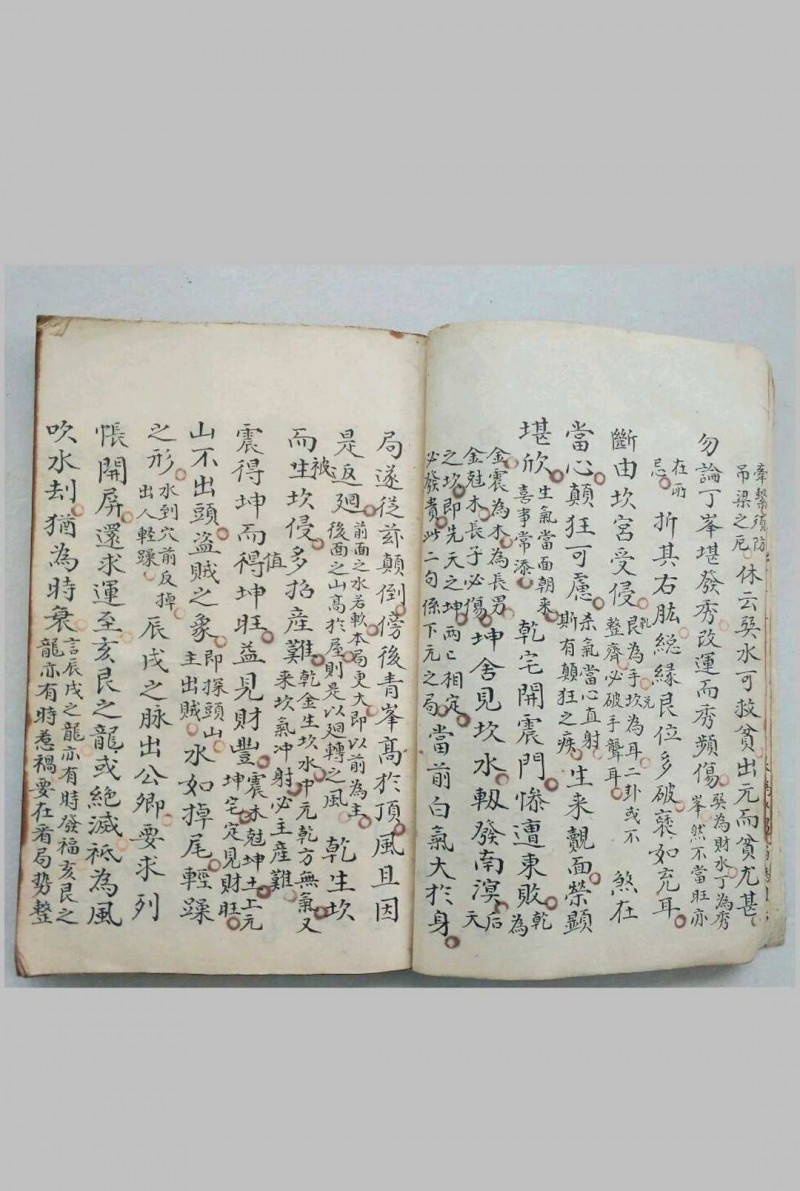 牽繫須防吊梁之厄休云癸水可救貧出元而貧尤甚
勿論丁峯堪發秀改運而秀頻傷癸為財水丁為秀峯然不當旺亦
在所忌折其右肱緫緣艮位多破褎如充耳
斷由坎宮受侵艮為手坎為耳二卦或不整齊必破手聾耳煞在
當心顛狂可慮杀氣當心直射斯有顛狂之疾生来覿面榮顯
堪欣生氣當面朝来喜事常添乾宅開震門慘遭東敗乾為
金震為木為長男金尅木長子必傷坤舍見坎水軔發南溟后天
之坎即先天之坤兩匕相定必發貴此二句係下元之局當前白氣大於身
局遂従茲顛倒傍後青峯髙於頂風且因
是返廻前面之水若軟本局更大即以前為主後面之山髙於屋則是以廻轉之風乾生坎
而被坎侵多招產難乾金生坎水中元乾方無氣又值来坎氣冲射必主產難
震得坤而得坤旺益見財豐震木尅坤土上元坤宅定見財旺
山不出頭盜賊之象即探頭山主出賊水如掉尾輕躁
之形水到穴前反掉出人輕躁辰戌之脉出公卿要求列
帳開屏還求運至亥艮之龍或絕滅袛為風
吹水刦猶為時衰言辰戌之龍亦有時發福亥艮之龍亦有時惹禍要在看局势整